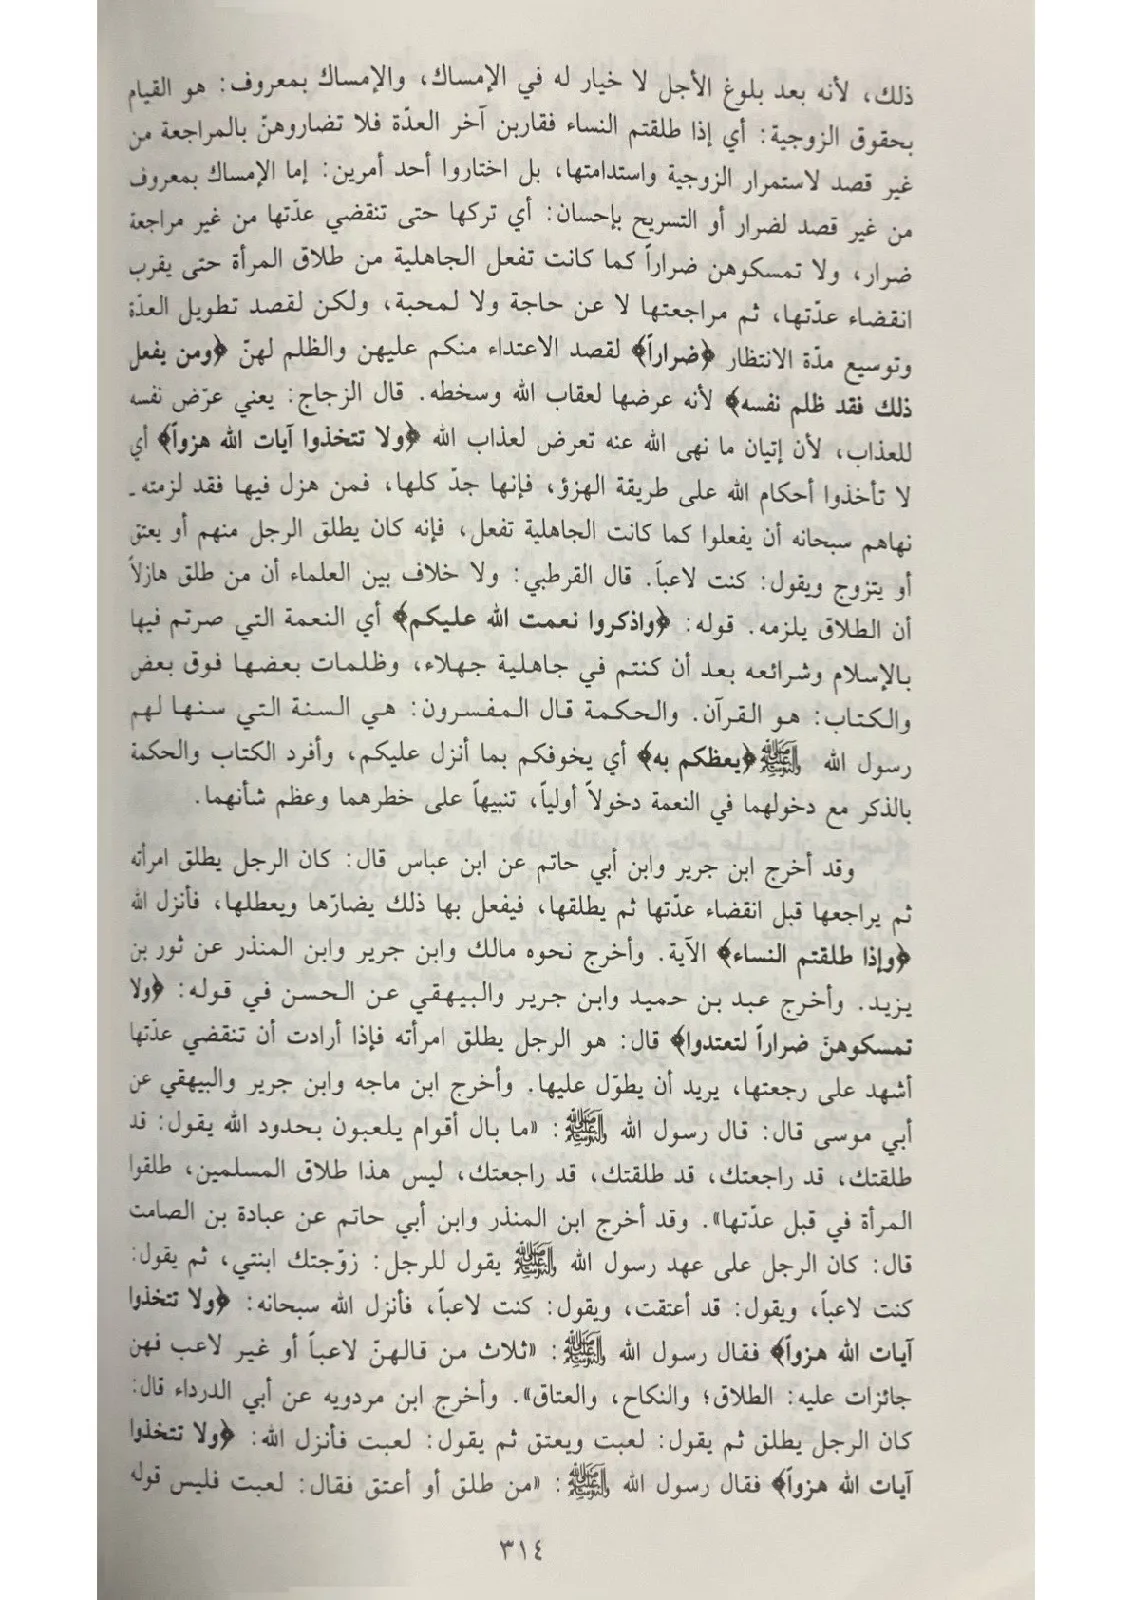 ذلك، لأنه بعد بلوغ الأجل لا خيار له في الإمساك، والإمساك بمعروف: هو القيام
بحقوق الزوجية: أي إذا طلقتم النساء فقاربن آخر العدّة فلا تضاروهنّ بالمراجعة من
غير قصد لاستمرار الزوجية واستدامتها، بل اختاروا أحد أمرين: إما الإمساك بمعروف
من غير قصد لضرار أو التسريح بإحسان: أي تركها حتى تنقضي عدّتها من غير مراجعة
ضرار، ولا تمسكوهن ضراراً كما كانت تفعل الجاهلية من طلاق المرأة حتى يقرب
انقضاء عدّتها، ثم مراجعتها لا عن حاجة ولا لمحبة، ولكن لقصد تطويل العدّة
وتوسيع مدّة الانتظار ﴿ضراراً﴾ لقصد الاعتداء منكم عليهن والظلم لهنّ ﴿ومن يفعل
ذلك فقد ظلم نفسه﴾ لأنه عرضها لعقاب الله وسخطه. قال الزجاج: يعني عرّض نفسه
للعذاب، لأن إتيان ما نهى الله عنه تعرض لعذاب الله ﴿ولا تتخذوا آيات الله هزواً﴾ أي
لا تأخذوا أحكام الله على طريقة الهزؤ، فإنها جدّ كلها، فمن هزل فيها فقد لزمته ـ
نهاهم سبحانه أن يفعلوا كما كانت الجاهلية تفعل، فإنه كان يطلق الرجل منهم أو يعتق
أو يتزوج ويقول: كنت لاعباً. قال القرطبي: ولا خلاف بين العلماء أن من طلق هازلاً
أن الطلاق يلزمه. قوله: ﴿واذكروا نعمت الله عليكم﴾ أي النعمة التي صرتم فيها
بالإسلام وشرائعه بعد أن كنتم في جاهلية جهلاء، وظلمات بعضها فوق بعض
والكتاب: هو القرآن. والحكمة قال المفسرون: هي السنة التي سنها لهم
رسول الله ﷺ ﴿يعظكم به﴾ أي يخوفكم بما أنزل عليكم، وأفرد الكتاب والحكمة
بالذكر مع دخولهما في النعمة دخولاً أولياً، تنبيهاً على خطرهما وعظم شأنهما.
وقد أخرج ابن جرير وابن أبي حاتم عن ابن عباس قال: كان الرجل يطلق امرأته
ثم يراجعها قبل انقضاء عدّتها ثم يطلقها، فيفعل بها ذلك يضارّها ويعطلها، فأنزل الله
﴿وإذا طلقتم النساء﴾ الآية. وأخرج نحوه مالك وابن جرير وابن المنذر عن ثور بن
يزيد. وأخرج عبد بن حميد وابن جرير والبيهقي عن الحسن في قوله: ﴿ولا
تمسكوهنّ ضراراً لتعتدوا﴾ قال: هو الرجل يطلق امرأته فإذا أرادت أن تنقضي عدّتها
أشهد على رجعتها، يريد أن يطوّل عليها. وأخرج ابن ماجه وابن جرير والبيهقي عن
أبي موسى قال: قال رسول الله ﷺ: «ما بال أقوام يلعبون بحدود الله يقول: قد
طلقتك، قد راجعتك، قد طلقتك، قد راجعتك، ليس هذا طلاق المسلمين، طلقوا
المرأة في قبل عدّتها». وقد أخرج ابن المنذر وابن أبي حاتم عن عبادة بن الصامت
قال: كان الرجل على عهد رسول الله ﷺ يقول للرجل: زوّجتك ابنتي، ثم يقول:
كنت لاعباً، ويقول: قد أعتقت، ويقول: كنت لاعباً، فأنزل الله سبحانه: ﴿ولا تتخذوا
آيات الله هزواً﴾ فقال رسول الله ﷺ: «ثلاث من قالهنّ لاعباً أو غير لاعب فهن
جائزات عليه: الطلاق؛ والنكاح، والعتاق». وأخرج ابن مردويه عن أبي الدرداء قال:
كان الرجل يطلق ثم يقول: لعبت ويعتق ثم يقول: لعبت فأنزل الله: ﴿ولا تتخذوا
آيات الله هزواً﴾ فقال رسول الله ﷺ: «من طلق أو أعتق فقال: لعبت فليس قوله
٣١٤